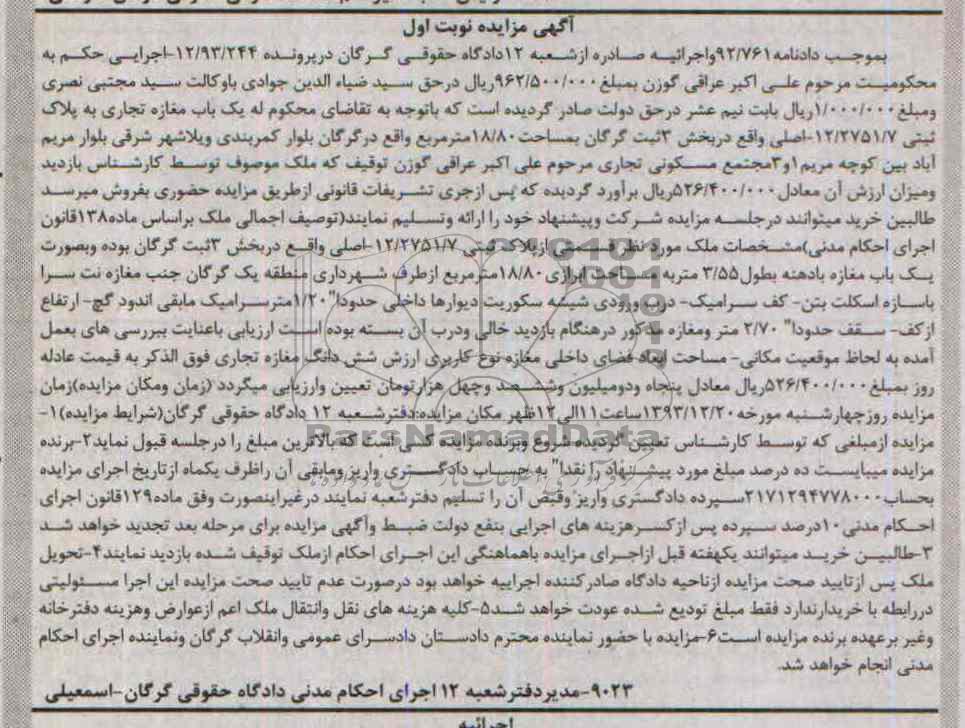 آگهی مزایده نوبت اول
بموجب دادنامه ۹۲/۷۶۱واجرائیه صادره ازشعبه ۱۲دادگاه حقوقی گرگان درپرونده ۱۲/۹۳/۲۴۴-اجرایی حکم به
محکومیت مرحوم علی اکبر عراقی گوزن بمبلغ۹۶۲/۵۰۰/۰۰۰ریال درحق سید ضیاء الدین جوادی باوکالت سید مجتبی نصری
ومبلغ۱/۰۰۰/۰۰۰ریال بابت نیم عشر درحق دولت صادر گردیده است که باتوجه به تقاضای محکوم له یک باب مغازه تجاری به پلاک
ثبتی ۱۲/۲۷۵۱/۷-اصلی واقع دربخش ۳ثبت گرگان بمساحت۱۸/۸۰مترمربع واقع درگرگان بلوار کمربندی ویلاشهر شرقی بلوار مریم
آباد بین کوچه مریم۱و۳مجتمع مسکونی تجاری مرحوم علی اکبر عراقی گوزن توقیف که ملک موصوف توسط کارشناس بازدید
ومیزان ارزش آن معادل۵۲۶/۴۰۰/۰۰۰ریال برآورد گردیده که پس ازجری تشریفات قانونی ازطریق مزایده حضوری بفروش میرسد
طالبین خرید میتوانند درجلسه مزایده شرکت وپیشنهاد خود را ارائه وتسلیم نمایند(توصیف اجمالی ملک براساس ماده۱۳۸قانون
اجرای احکام مدنی)مشخصات ملک مورد نظر قسمتی ازپلاک ثبتی ۱۲/۲۷۵۱/۷-اصلی واقع دربخش ۳ثبت گرگان بوده وبصورت
یک باب مغازه بادهنه بطول۳/۵۵ متربه مساحت ابرازی۱۸/۸۰مترمربع ازطرف شهرداری منطقه یک گرگان جنب مغازه نت سرا
باسازه اسکلت بتن- کف سرامیک- درب ورودی شیشه سکوریت دیوارها داخلی حدودا"۱/۲۰مترسرامیک مابقی اندود گچ- ارتفاع
ازکف- سقف حدودا" ۲/۷۰ متر ومغازه مذکور درهنگام بازدید خالی ودرب آن بسته بوده است ارزیابی باعنایت ببررسی های بعمل
آمده به لحاظ موقعیت مکانی- مساحت ابعاد فضای داخلی مغازه نوع کاربری ارزش شش دانگ مغازه تجاری فوق الذکر به قیمت عادله
روز بمبلغ۵۲۶/۴۰۰/۰۰۰ریال معادل پنجاه ودومیلیون وششصد وچهل هزارتومان تعیین وارزیابی میگردد (زمان ومکان مزایده)زمان
مزایده روزچهارشنبه مورخه ۱۳۹۳/۱۲/۲۰ساعت۱۱الی۱۲ظهر مکان مزایده:دفترشعبه ۱۲ دادگاه حقوقی گرگان(شرایط مزایده)۱-
مزایده ازمبلغی که توسط کارشناس تعیین گردیده شروع وبرنده مزایده کسی است که بالاترین مبلغ را درجلسه قبول نماید۲-برنده
مزایده میبایست ده درصد مبلغ مورد پیشنهاد را نقدا" به حساب دادگستری واریز ومابقی آن راظرف یکماه ازتاریخ اجرای مزایده
بحساب۲۱۷۱۲۹۴۷۷۸۰۰۰سپرده دادگستری واریز وقبض آن را تسلیم دفترشعبه نمایند درغیراینصورت وفق ماده۱۲۹قانون اجرای
احکام مدنی۱۰درصد سپرده پس ازکسرهزینه های اجرایی بنفع دولت ضبط وآگهی مزایده برای مرحله بعد تجدید خواهد شد
۳-طالبین خرید میتوانند یکهفته قبل ازاجرای مزایده باهماهنگی این اجرای احکام ازملک توقیف شده بازدید نمایند۴-تحویل
ملک پس ازتایید صحت مزایده ازناحیه دادگاه صادرکننده اجراییه خواهد بود درصورت عدم تایید صحت مزایده این اجرا مسئولیتی
دررابطه با خریدارندارد فقط مبلغ تودیع شده عودت خواهد شد۵-کلیه هزینه های نقل وانتقال ملک اعم ازعوارض وهزینه دفترخانه
وغیر برعهده برنده مزایده است۶-مزایده با حضور نماینده محترم دادستان دادسرای عمومی وانقلاب گرگان ونماینده اجرای احکام
مدنی انجام خواهد شد.
۹۰۲۳-مدیردفترشعبه ۱۲ اجرای احکام مدنی دادگاه حقوقی گرگان-اسمعیلی
اجرائیه
ParsNamadData